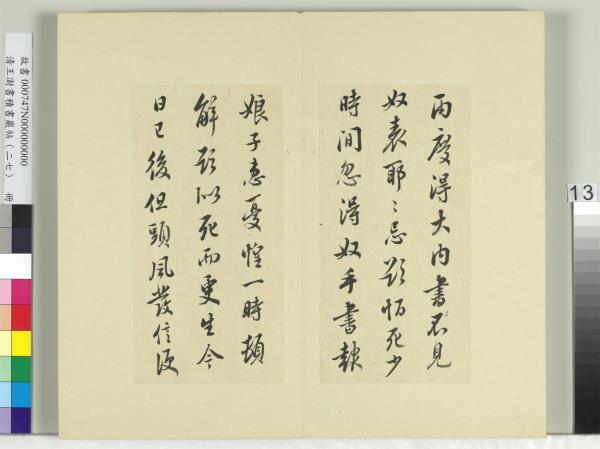 兩度得大內書不見
奴表耶〻忌欲恒死少
時間忽得奴手書報
娘子患憂惶一時頓
解欲似死而更生今
日已後但頭風發信便
故書 000747N000000000
清王澍書積書巖帖（二七） 冊
13